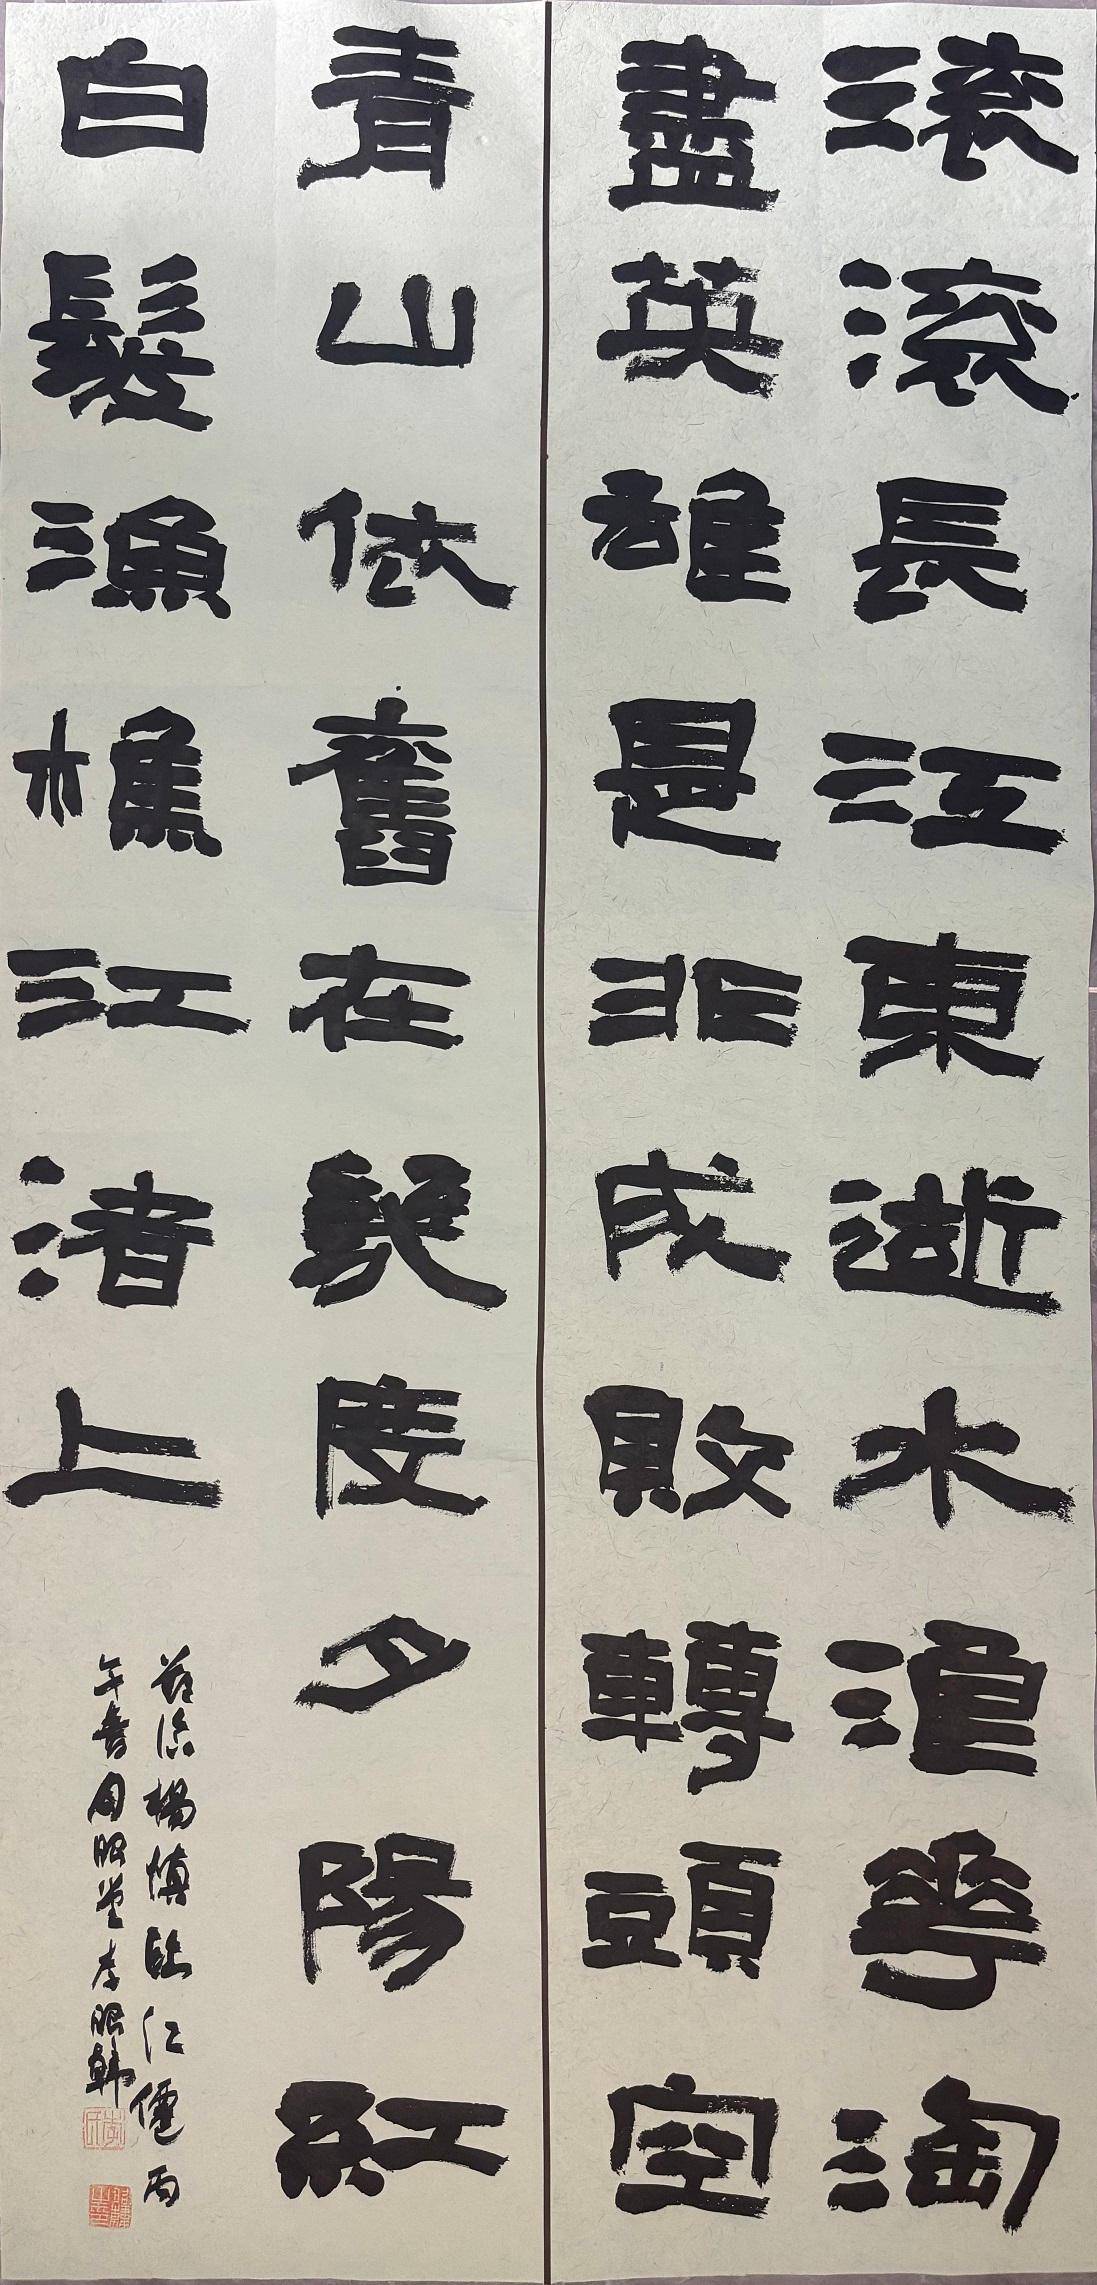 滾滾長江東逝水浪花淘
盡英雄是非成敗轉頭空
青山依舊在幾度夕陽紅
白髮漁樵江渚上
楊慎臨江僊丙
午書周昭堂李昭韓